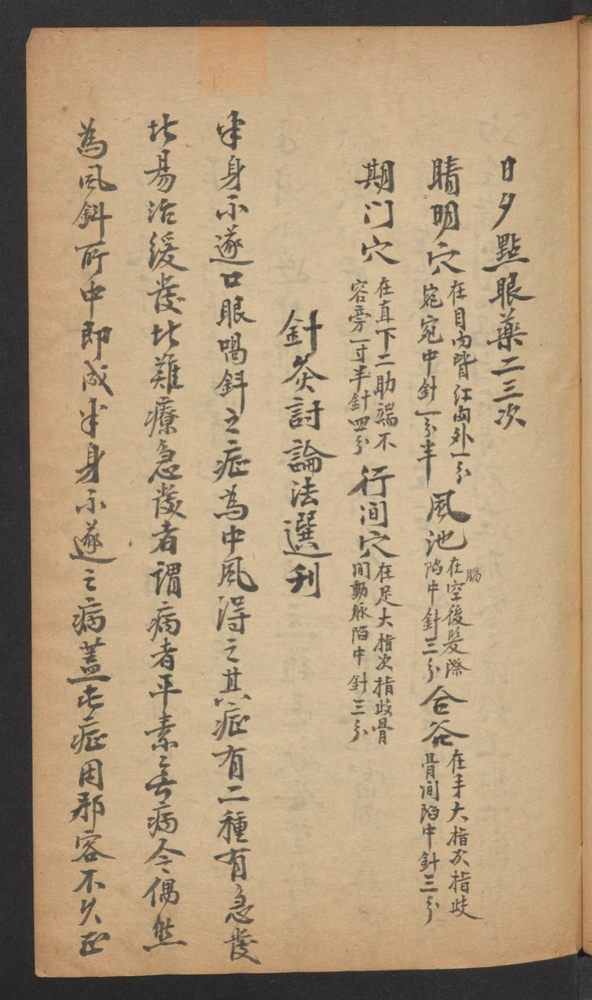 日夕點眼藥二三次
睛明穴 在目內眥紅肉外一分宛宛中針一分半 風池 在腦空後髮際陷中針三分 合谷 在手大指次指歧骨間陷中針三分
期门穴 在直下二肋端不容旁一寸半針四分 行间穴 在足大指次指歧骨间動脉陷中針三分
針灸討論法選刋
半身不遂口眼喎斜之症為中风得之其症有二種有急發
比易治緩發比難療急發者謂病者平素無病今偶然
為风斜所中即成半身不遂之病蓋此症因邪客不久正